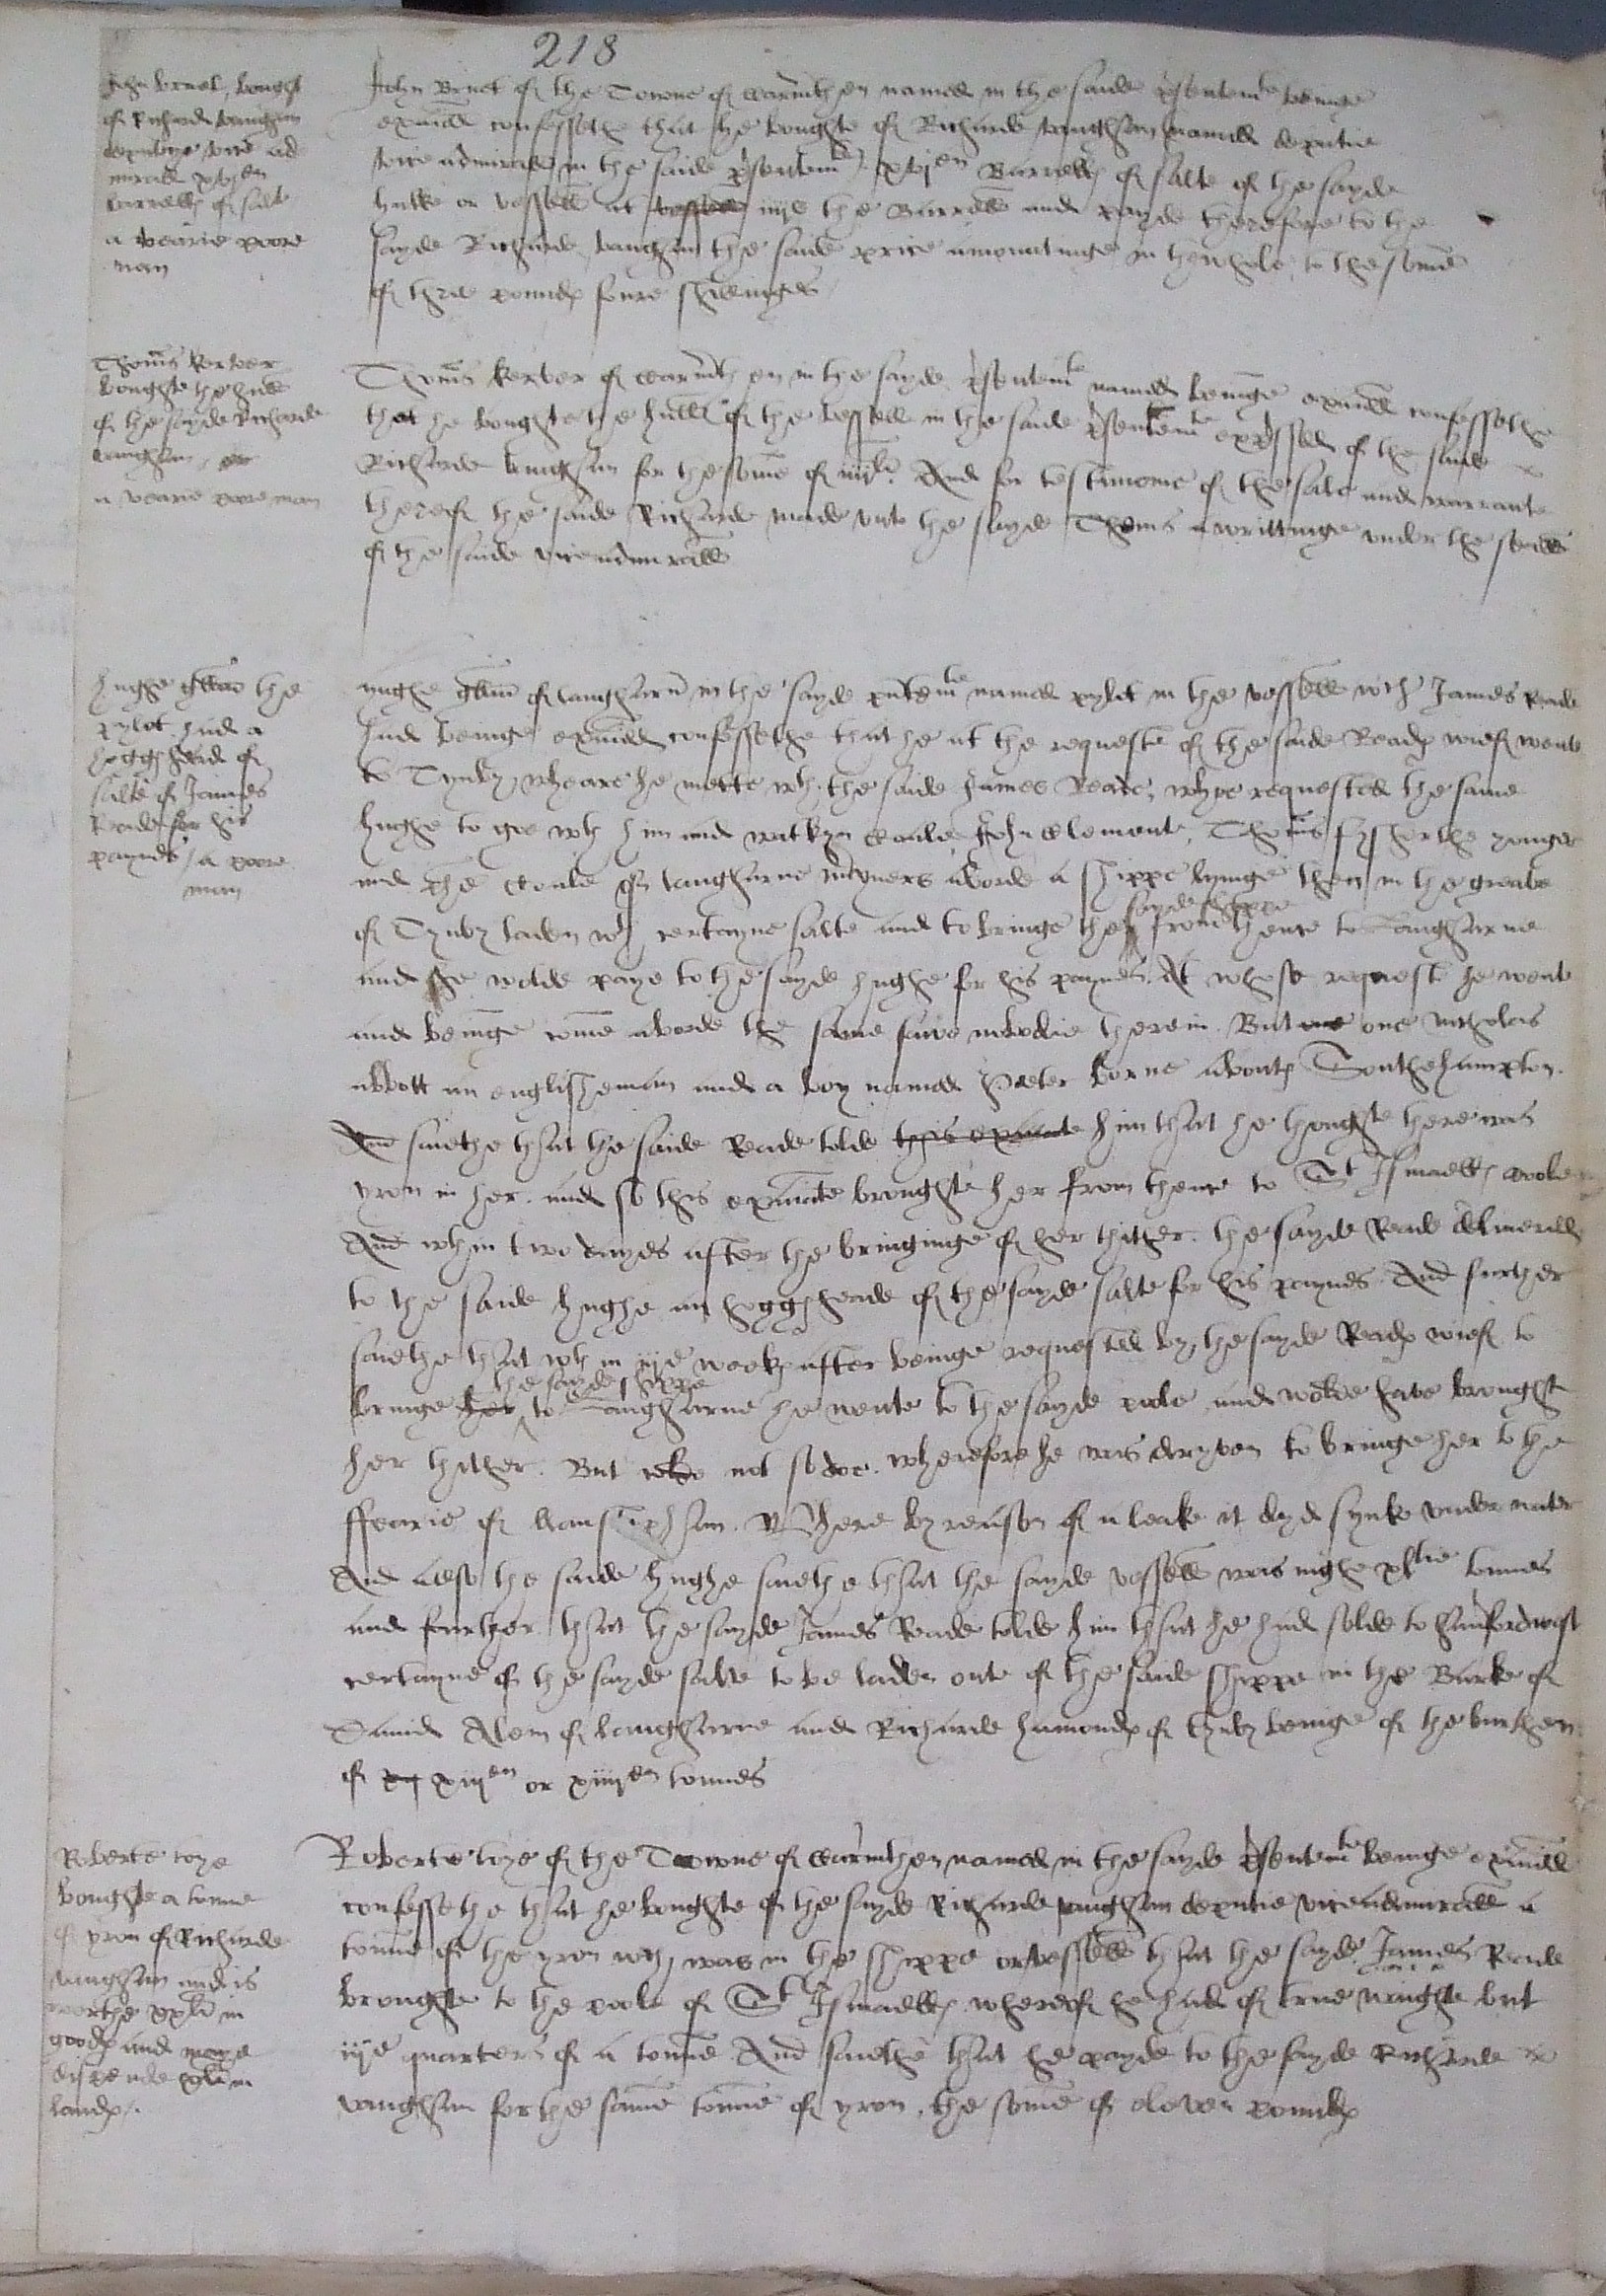 218
John Brnet, bought
of Richarde vaughan
deputye vice ad
mirall xvj en
barrells of salt
a vearie poore
man
John Brnet of the Towne of Carmthen named in the saide psentemt beinge
examd confessethe that he boughte of Richarde vaughan named deputie
vice admirall in the saide psentemt xvj en Barrells of salte of the sayde
hulke or vessell at vessell iiijs the Barrell and payde therefore to the
sayde Richarde vaughan the saide price amountinge in the whole to the some
of three pounds foure shillinges
Thoms Kerver
boughte the hull
of the sayde Richarde
vaughan,
a vearie poore man
Thoms Kerver of Carmthen in the sayde psentemt named beinge examd confessethe
that he boughte the hull of the vessell in the saide psentemt expssed of the saide
Richarde vaughan for the some of iiijli. And for testimonie of the sale and warrante
thereof the saide Richarde made unto the sayde Thoms a writtinge under the seale
of the saide viceadmirall
Hughe gwm the
pylot had a
hoggshead of
salte of James
Reade for his
paynes / a poore
man
Hughe gwm of laugharn in the sayde pntemt named pylot in the vessell wch James Reade
had beinge examd confessethe that he at the requeste of the saide Reads wief wente
to Tynby, wheare he mette wth the saide James Reade, whoe requested the same
hughe to goe wth him and watkyn Coule, John Clement, Thoms fyssher the yonger
and Coule of laugharne mryners aborde a shippe lyinge then in the
of Tynby laden wth certayne salte and to bringe the sayde shippe from thence to laugharne
and he wolde paye to the sayde hughe for his paynes. At whose request he went
and beinge come aborde the same sawe nobodie therein. But one one nicholas
abbott an englisheman and a boy named Peeter borne aboute Southehampton.
And saiethe that the saide Reade tolde this examte him that he thoughte there was
yron in her. and so this examte broughte her from thence to St Ismaells poole
And wthin two dayes after the bringinge of her thither. the sayde Reade delivered
to the saide hughe an hoggsheade of the sayde salte for his paynes. And further
saiethe that wthin iije weeks after beinge requested by the sayde Reads wief to
bringe her the sayde shippe to laugharne he wente to the sayde poole and wolde have brought
her thither. But colde not so doe. wherefore he was dryven to bringe her to the
ffearie of llanstephan. Where by reason of a leake it dyd synke under water
And also the saide hughe saiethe that the sayde vessell was nighe xltie tonnes
and further that the sayde James Reade tolde him that he had solde to haverfordwest
certayne of the sayde salte to be laden oute of the saide shippe in the Barke of
David Alem of laugharne and Richarde hamonds of Tynby beinge of the burthen
of xij xiij en or xiiij en tonnes
Roberte toye
boughte a tonne
of yron of Richarde
vaughan and is
worthe xxli in
goods and maye
dispende xli in
lands.
Roberte toye of the Towne of Carmthen named in the sayde psentemt beinge examd
confessethe that he boughte of the sayde Richarde vaughan deputie viceadmirall a
tonne of the yron wch was in the shippe or vessell that the sayde James Reade
broughte to the poole of St Ismaells whereof he had of true waughte but
iije quarters of a tonne And saiethe that he payde to the sayde Richarde
vaughan for the same tonne of yron, the some of eleven pounds